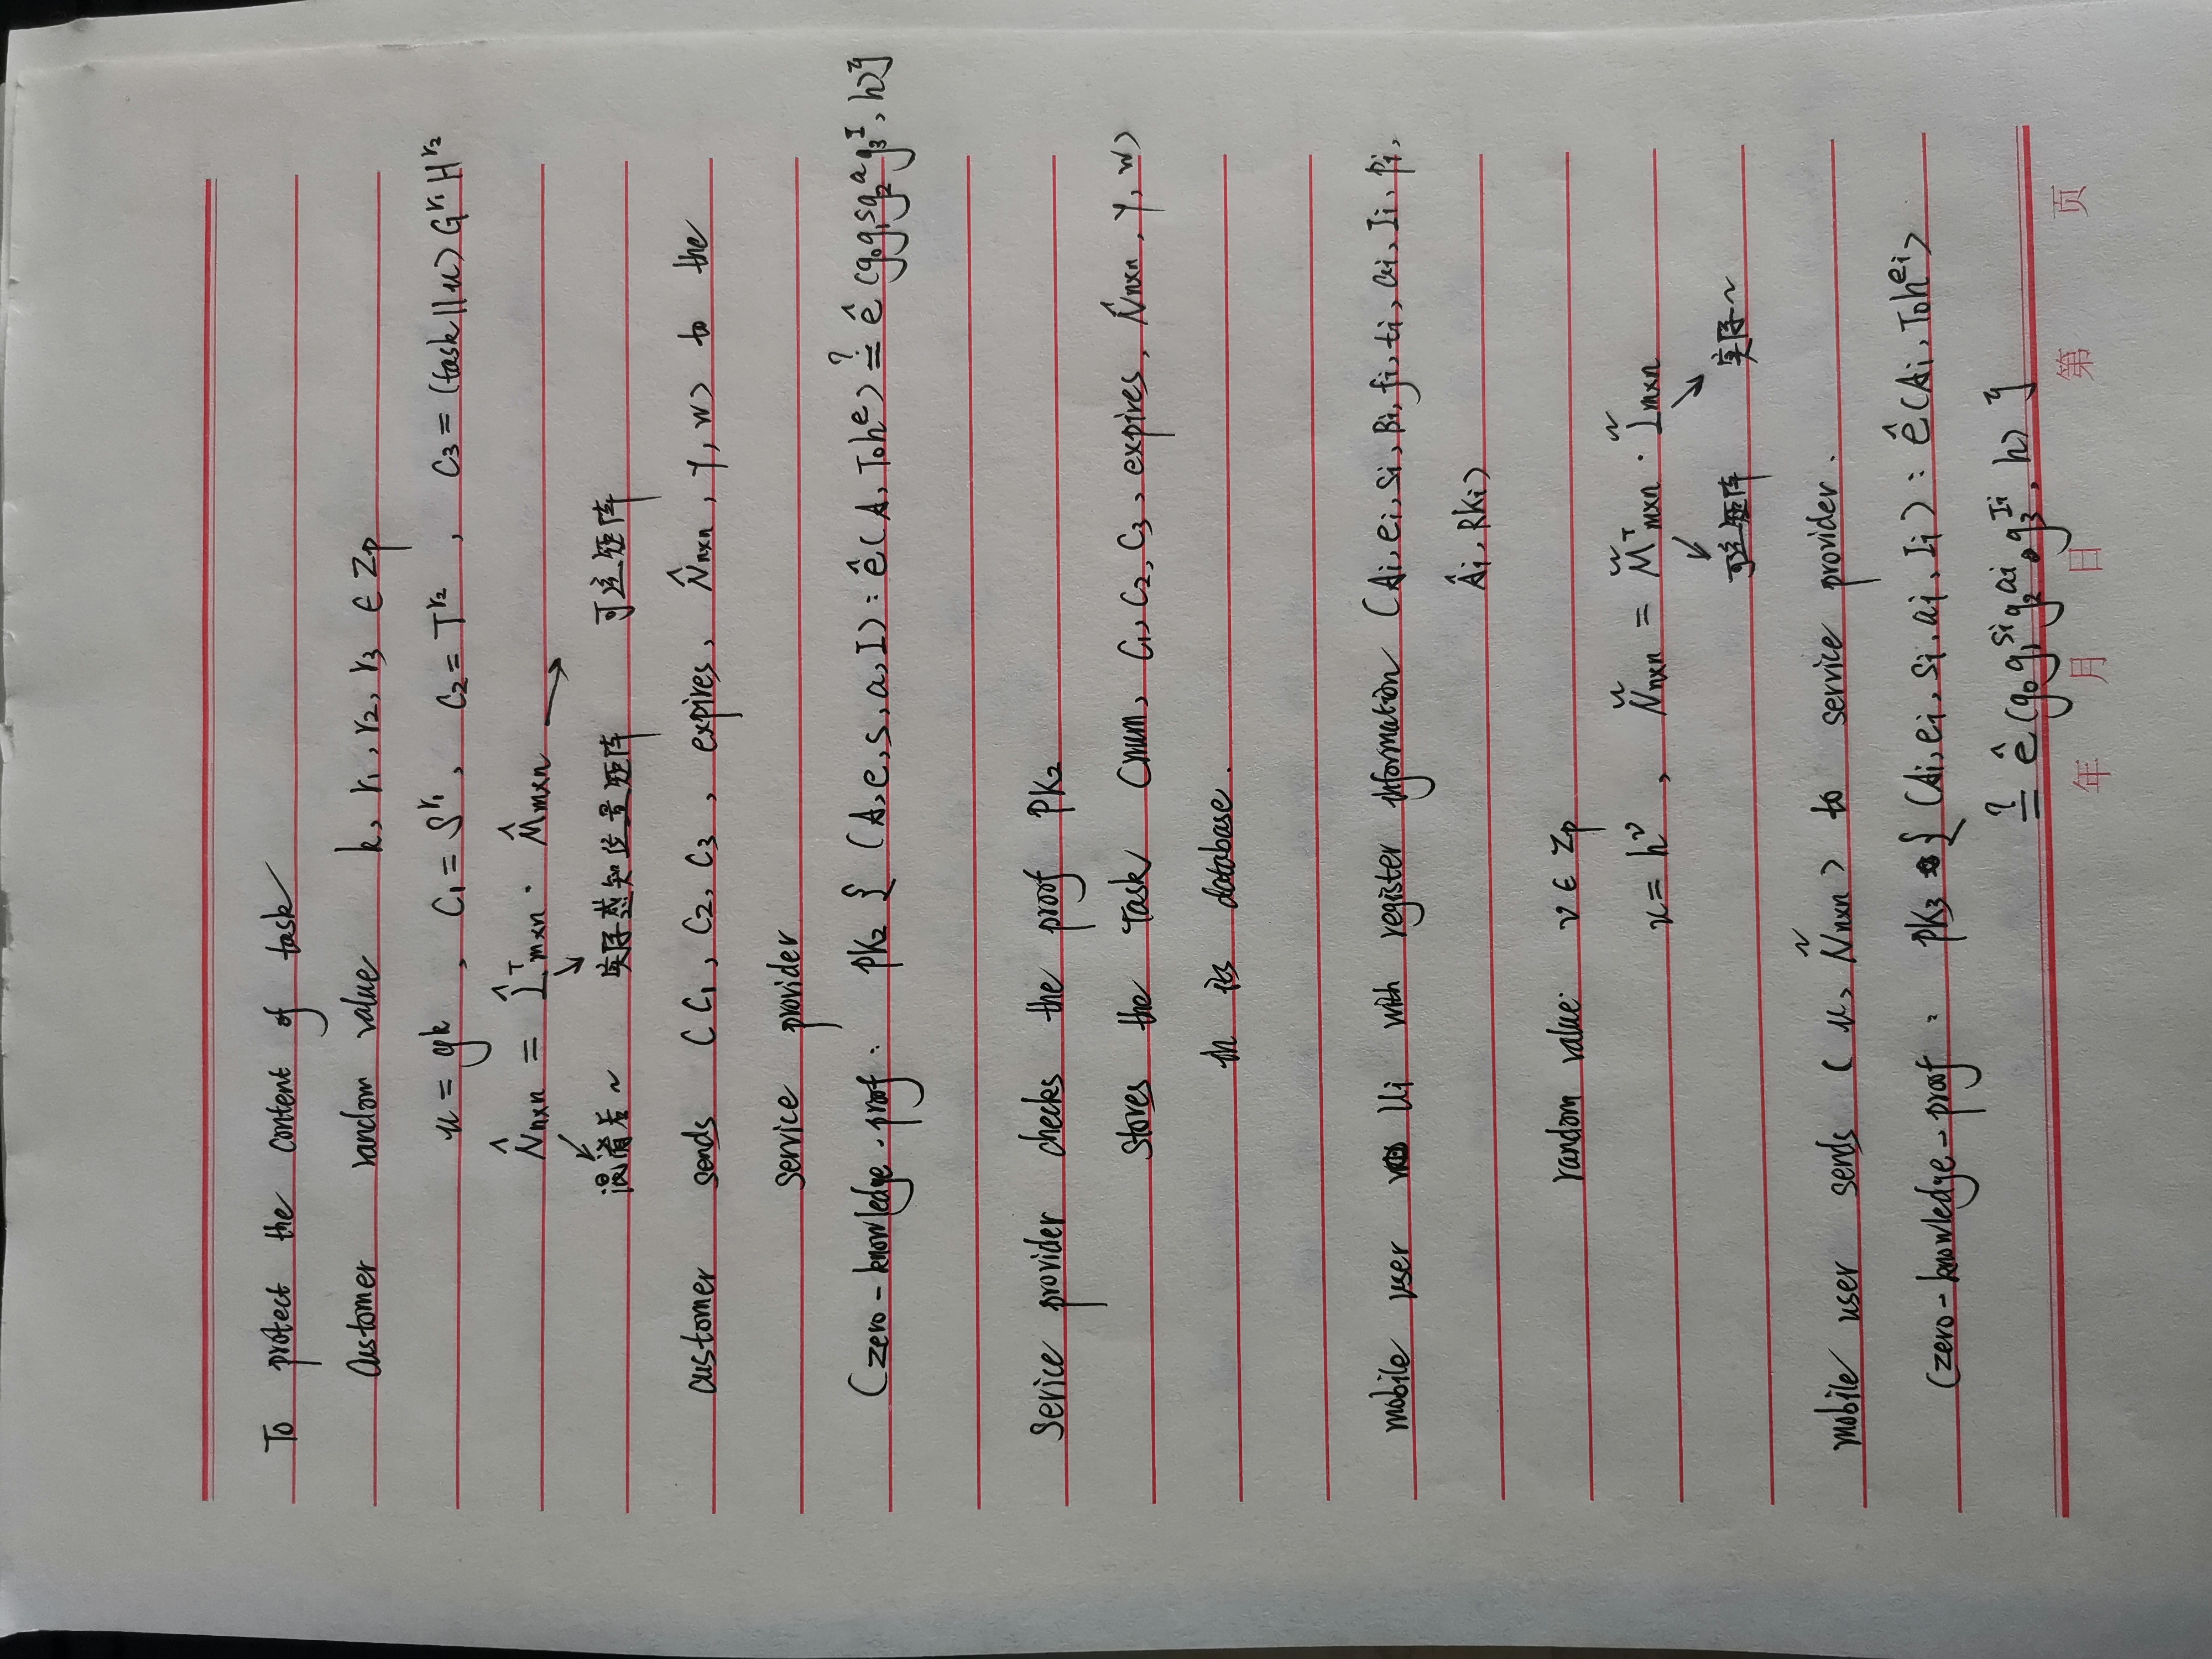 To protect the content of task
Customer random value k, r₁, r₂, r₃ ∈ Zp
u = gᵏ , C₁ = S^r₁, C₂ = T^r₂ , C₃ = (task||u) G^r₁ H^r₂
N̂n×n = L̂ᵀm×n · M̂m×n →
混淆后~ 实际感知位置矩阵 可逆矩阵
customer sends (C₁, C₂, C₃, expires, N̂n×n, γ, w) to the
service provider
(zero-knowledge-proof: PK₂ { (A, e, s, a, I) : ê(A, T₀hᵉ) ≟ ê(g₀g₁ˢg₂ᵃg₃ᴵ, h)}
Service provider checks the proof PK₂
stores the Task (num, C₁, C₂, C₃, expires, N̂n×n, γ, w)
in its database.
mobile user Ui with register information (Ai, ei, si, Bi, fi, ti, ai, Ii, pi,
Âi, RKi)
random value: ν ∈ Zp
u = h^ν , Ñn×n = M̃ᵀm×n · L̃m×n
可逆矩阵 实际~
mobile user sends (u, Ñn×n) to service provider.
(zero-knowledge-proof: PK₃ { (Ai, ei, si, ai, Ii) : ê(Ai, T₀h^ei)
≟ ê(g₀g₁^si g₂^ai g₃^Ii, h) }
年 月 日 第 页